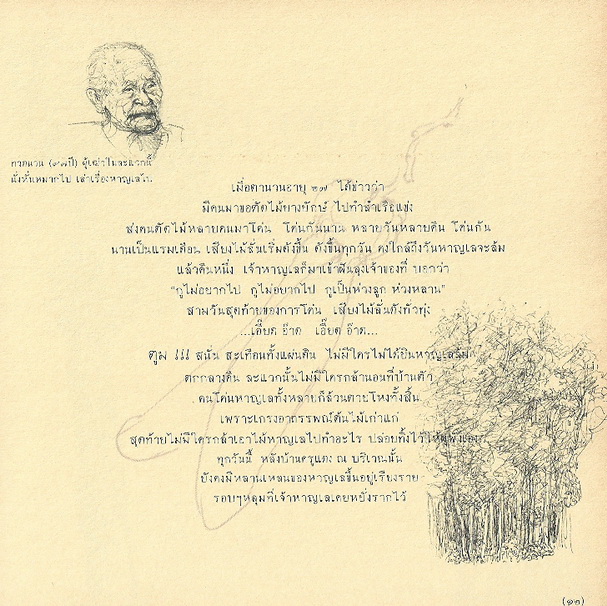 ทวดนวน (๙๗ปี) ผู้เฒ่าในละแวกนี้
นั่งหั่นหมากไป เล่าเรื่องหาญเลไป.
เมื่อตานวนอายุ ๒๗ ได้ข่าวว่า
มีคนมาขอตัดไม้ยางยักษ์ ไปทำลำเรือแข่ง
ส่งคนตัดไม้หลายคนมาโค่น โค่นกันนาน หลายวันหลายคืน โค่นกัน
นานเป็นแรมเดือน เสียงไม้ลั่นเริ่มดังขึ้น ดังขึ้นทุกวัน คงใกล้ถึงวันหาญเลจะล้ม
แล้วคืนหนึ่ง เจ้าหาญเลก็มาเข้าฝันลุงเจ้าของที่ บอกว่า
"กูไม่อยากไป กูไม่อยากไป กูเป็นห่วงลูก ห่วงหลาน"
สามวันสุดท้ายของการโค่น เสียงไม้ลั่นดังทั่วทุ่ง
...เอี๊ยด อ๊าด เอี๊ยด อ๊าด...
ตูม !!! สนั่น สะเทือนทั้งแผ่นดิน ไม่มีใครไม่ได้ยินหาญเลล้ม
ตกกลางคืน ละแวกนั้นไม่มีใครกล้านอนที่บ้านตัว
คนโค่นหาญเลทั้งหลายก็ล้วนตายโหงทั้งสิ้น
เพราะเกรงอาถรรพณ์ต้นไม้เก่าแก่
สุดท้ายไม่มีใครกล้าเอาไม้หาญเลไปทำอะไร ปล่อยทิ้งไว้ให้ผุพังเอง
ทุกวันนี้ หลังบ้านครูแดง ณ บริเวณนั้น
ยังคงมีหลานเหลนของหาญเลขึ้นอยู่เรียงราย
รอบๆหลุมที่เจ้าหาญเลเคยหยั่งรากไว้
(๑๒)